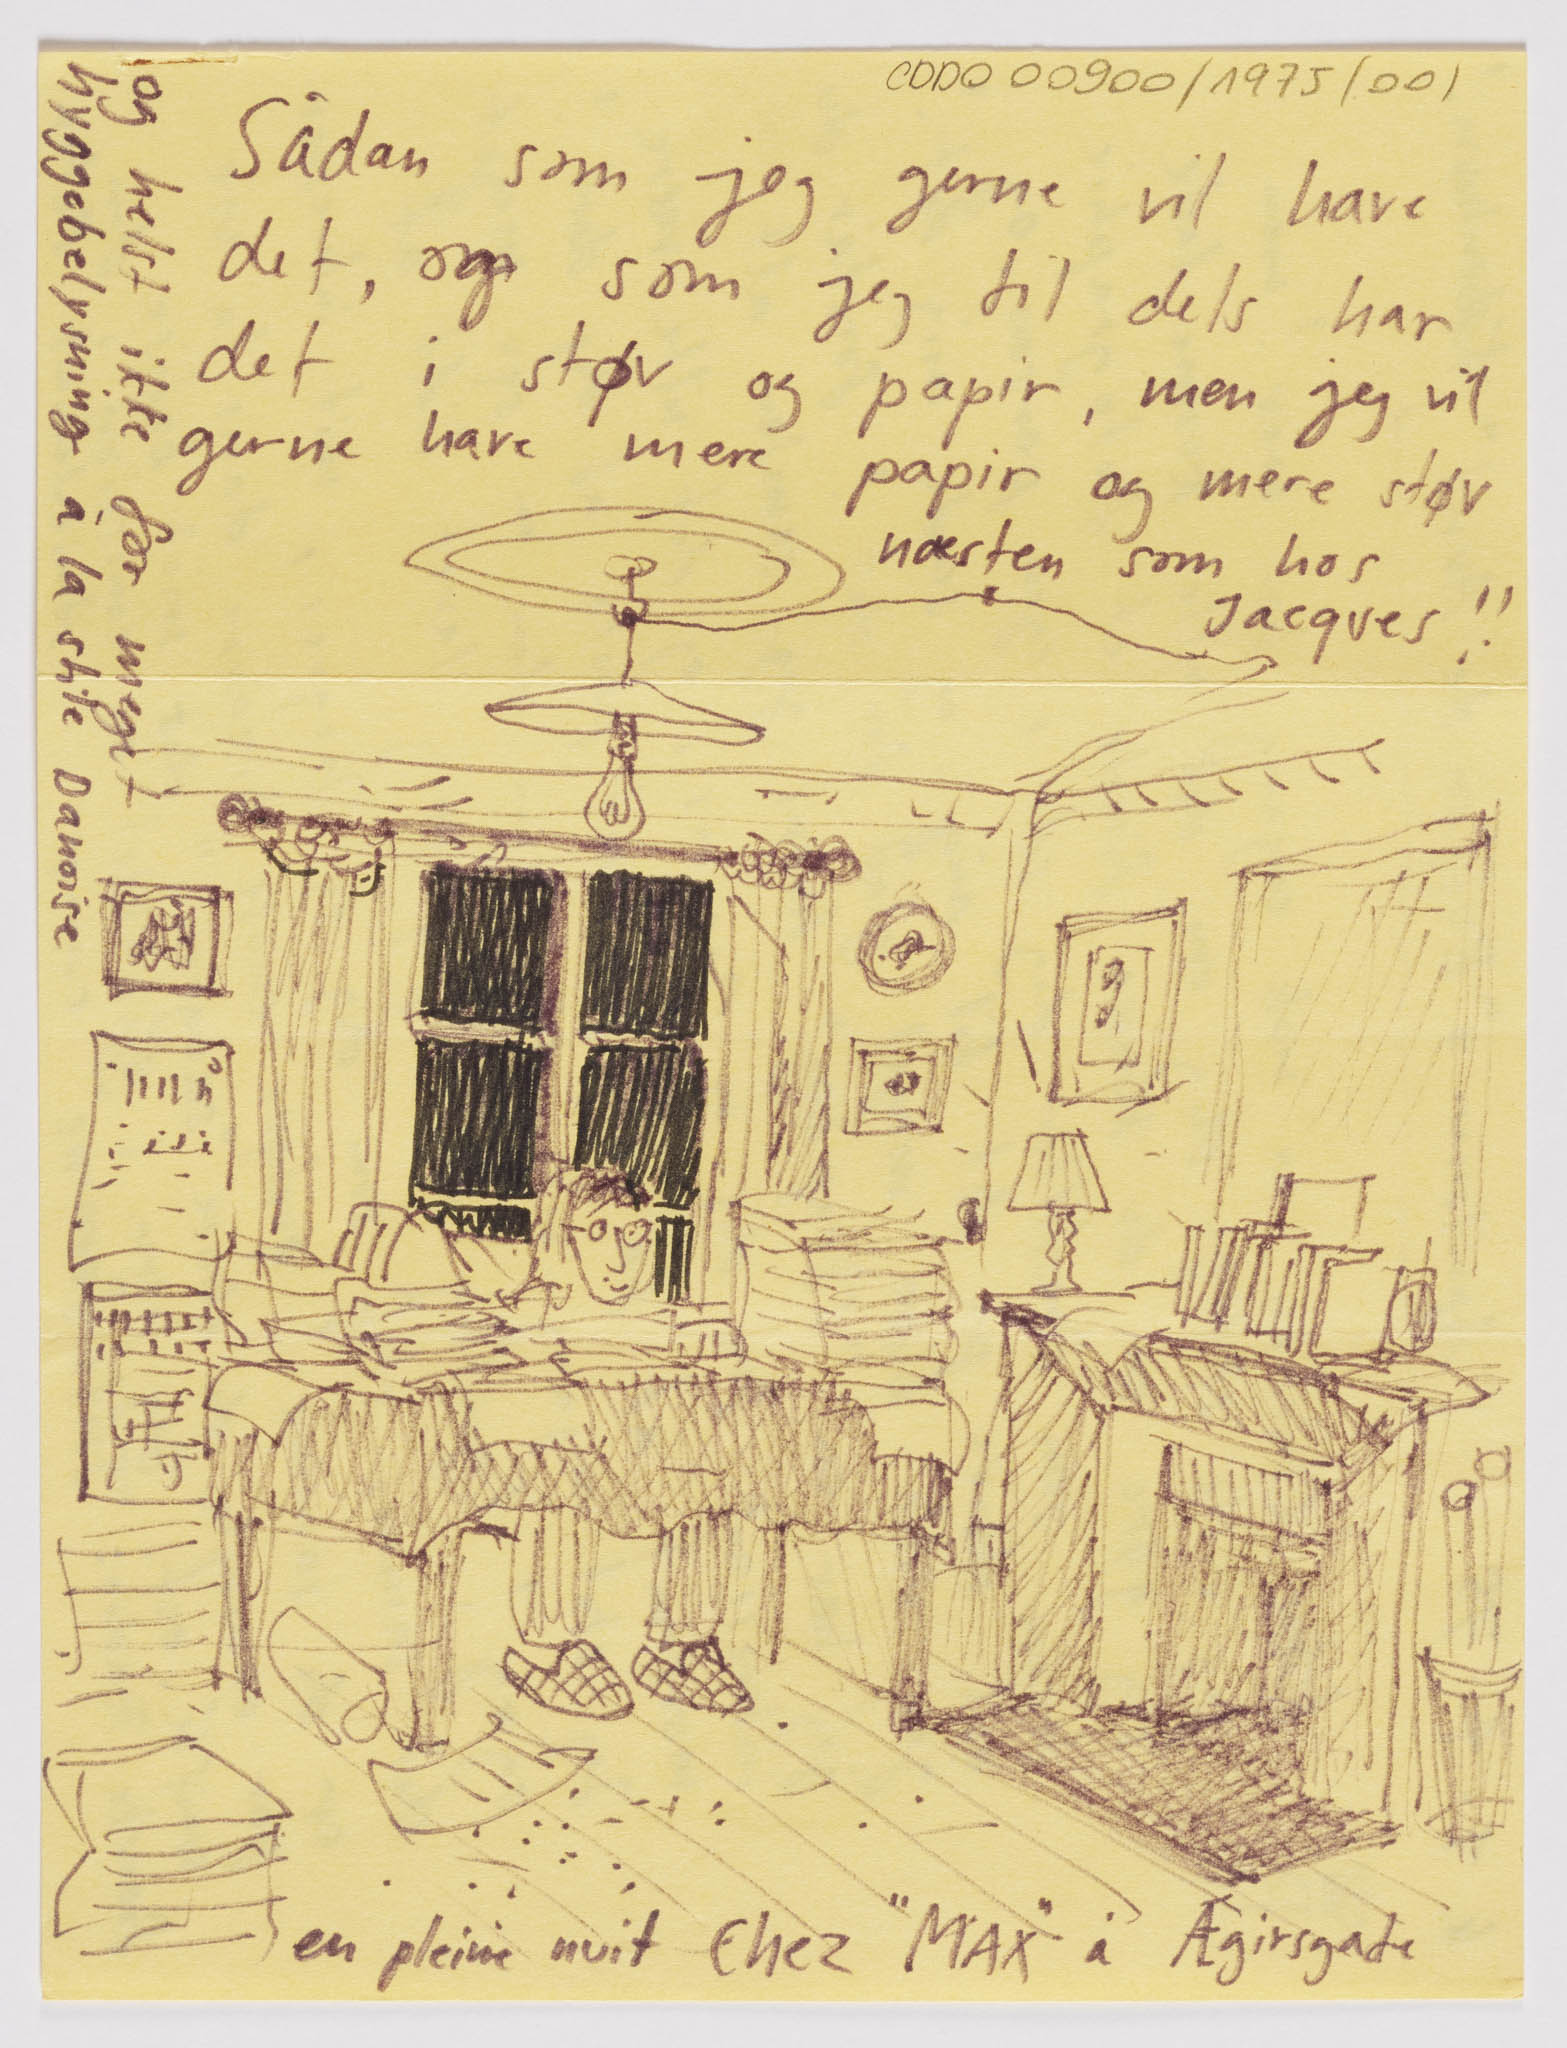 CDDO 00900/1975/001
Sådan som jeg gerne vil have
det, og som jeg til dels har
det i støv og papir, men jeg vil
gerne have mere papir og mere støv
næsten som hos
Jacques !!
og helst ikke for meget
hyggebelysning à la stile Danoise
en pleine nuit Chez "MAX" à Ægirsgade